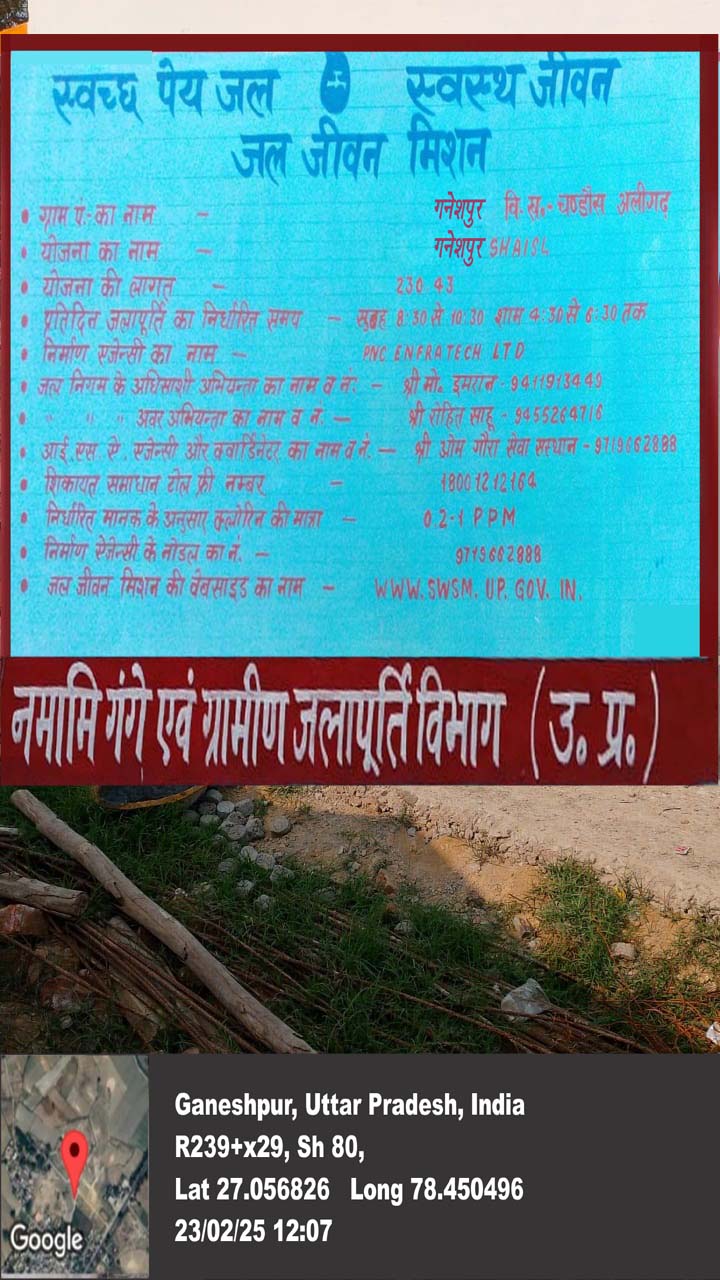 स्वच्छ पेय जल स्वस्थ जीवन
जल जीवन मिशन
• ग्राम पं.-का नाम - गनेशपुर वि.ख.-चण्डौस अलीगढ़
• योजना का नाम - गनेशपुर SHAISL
• योजना की लागत - 230.43
• प्रतिदिन जलापूर्ति का निर्धारित समय - सुबह 8:30 से 10:30 शाम 4:30 से 6:30 तक
• निर्माण एजेन्सी का नाम - PNC ENFRATECH LTD
• जल निगम के अधिसाशी अभियन्ता का नाम व नं. - श्री मो. इमरान - 9411913449
• " " " अवर अभियन्ता का नाम व नं. - श्री रोहित साहू - 9455264716
• आई.एस.ऐ. एजेन्सी और क्वार्डिनेटर का नाम व नं. - श्री ओम गौरा सेवा संस्थान - 9719662888
• शिकायत समाधान टोल फ्री नम्बर - 18001212164
• निर्धारित मानक के अनुसार क्लोरिन की मात्रा - 0.2-1 PPM
• निर्माण ऐजेन्सी के नोडल का नं. - 9719662888
• जल जीवन मिशन की वेबसाइड का नाम - WWW.SWSM.UP.GOV.IN.
नमामि गंगे एवं ग्रामीण जलापूर्ति विभाग (उ.प्र.)
Ganeshpur, Uttar Pradesh, India
R239+x29, Sh 80,
Lat 27.056826 Long 78.450496
23/02/25 12:07
Google